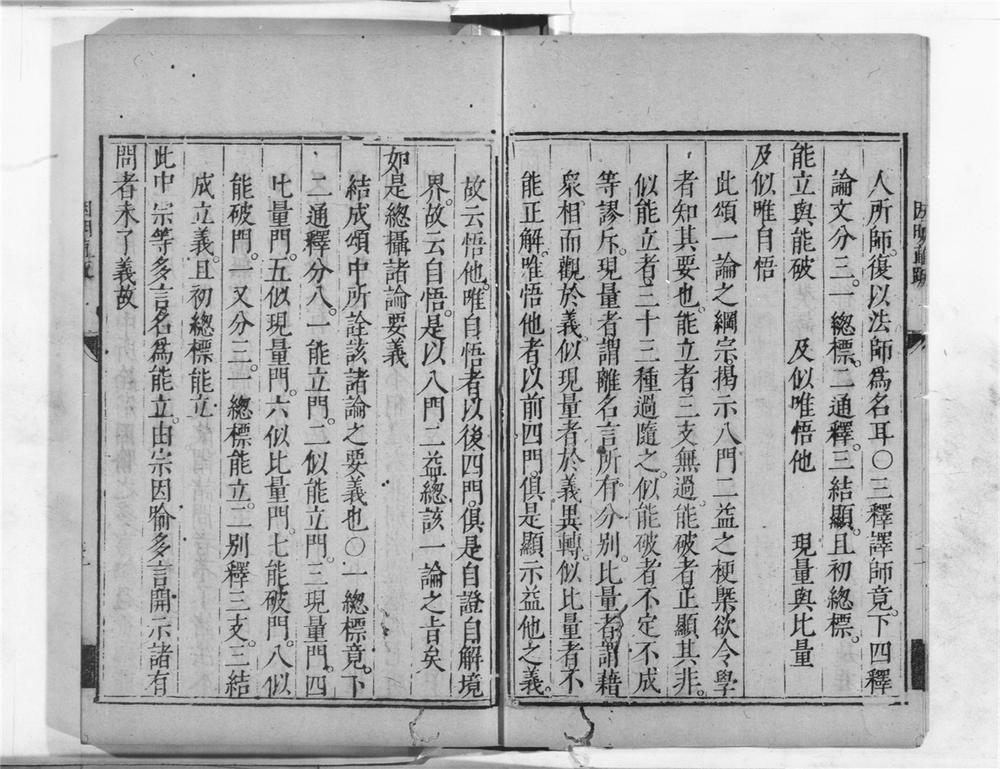 人所師。復以法師爲名耳〇三釋譯師竟。下四釋
論文分三。一總標。二通釋。三結顯。且初總標。
能立與能破 及似唯悟他 現量與比量
及似唯自悟
此頌一論之綱宗揭示八門二益之梗槩欲令學
者知其要也。能立者三支無過。能破者正顯其非。
似能立者三十三種過隨之。似能破者不定不成
等謬斥。現量者謂離名言所有分別。比量者謂藉
衆相而觀於義。似現量者於義異轉。似比量者不
能正解。唯悟他者以前四門。俱是顯示益他之義。
故云悟他。唯自悟者以後四門。俱是自證自解境
界。故云自悟。是以八門二益總該一論之旨矣
如是總攝諸論要義
結成頌中所詮該諸論之要義也〇一總標竟。下
二通釋分八。一能立門。二似能立門。三現量門。四
比量門。五似現量門。六似比量門。七能破門。八似
能破門。一又分三。一總標能立。二別釋三支。三結
成立義。且初總標能立
此中宗等多言名爲能立。由宗因喻多言開示諸有
問者未了義故